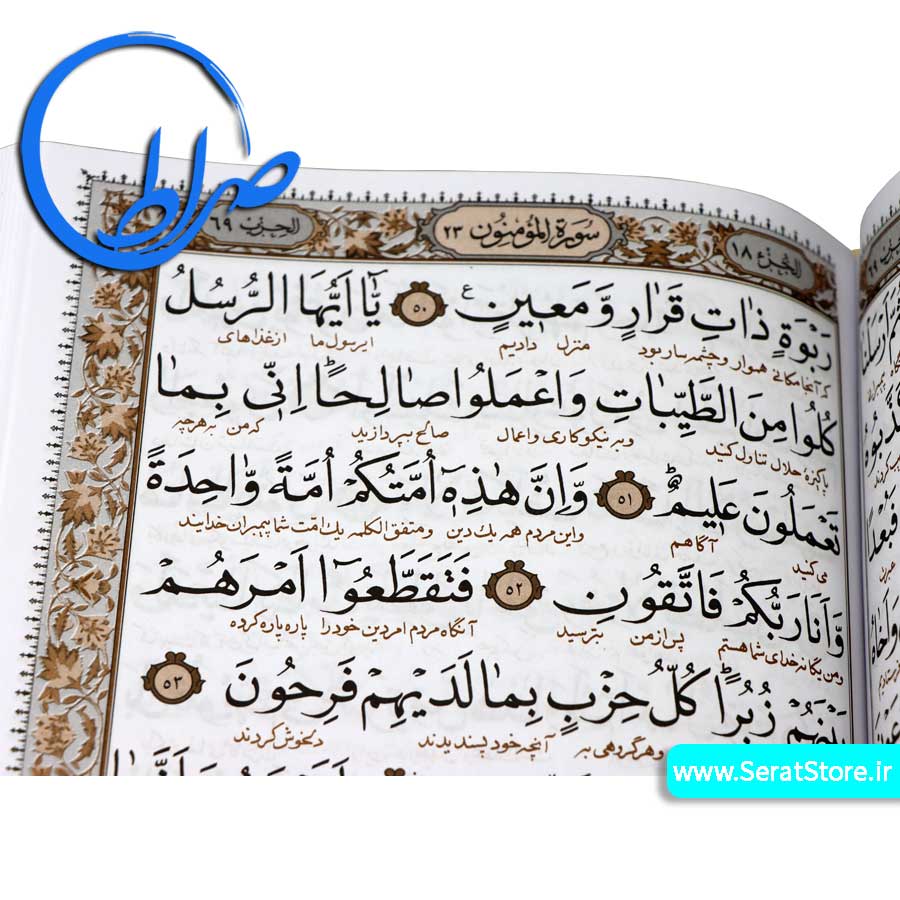 صراط
الجزء ۱۸
سورة المؤمنون ۲۳
الحزب ۶۹
رَبْوَةٍ ذَاتِ قَرَارٍ وَّ مَعِينٍ ۵۰ يَٓا اَيُّهَا الرُّسُلُ
که آنجا مکانی هموار و چشمه سار بود منزل دادیم ای رسول ما از غذاهای
كُلُوا مِنَ الطَّيِّبَاتِ وَاعْمَلُوا صَالِحًا اِنّ۪ى بِمَا
پاکیزهٔ حلال تناول کنید و به نیکوکاری و اعمال صالح بپردازید که من به هرچه
تَعْمَلُونَ عَلِيمٌ ۵۱ وَاِنَّ هٰذِهٓ اُمَّتُكُمْ اُمَّةً وَّاحِدَةً
می کنید آگاهم و این مردم همه یک دین و متفق الکلمه یک امت شما پیمبران خدایند
وَّاَنَا رَبُّكُمْ فَاتَّقُونِ ۵۲ فَتَقَطَّعُوٓا اَمْرَهُمْ
و من یگانه خدای شما هستم پس از من بترسید آنگاه مردم امر دین خود را پاره پاره کرده
بَيْنَهُمْ زُبُرًا كُلُّ حِزْبٍ بِمَا لَدَيْهِمْ فَرِحُونَ ۵۳
و هر گروهی به آنچه خود پسندیدند دلخوش کردند
www.SeratStore.ir